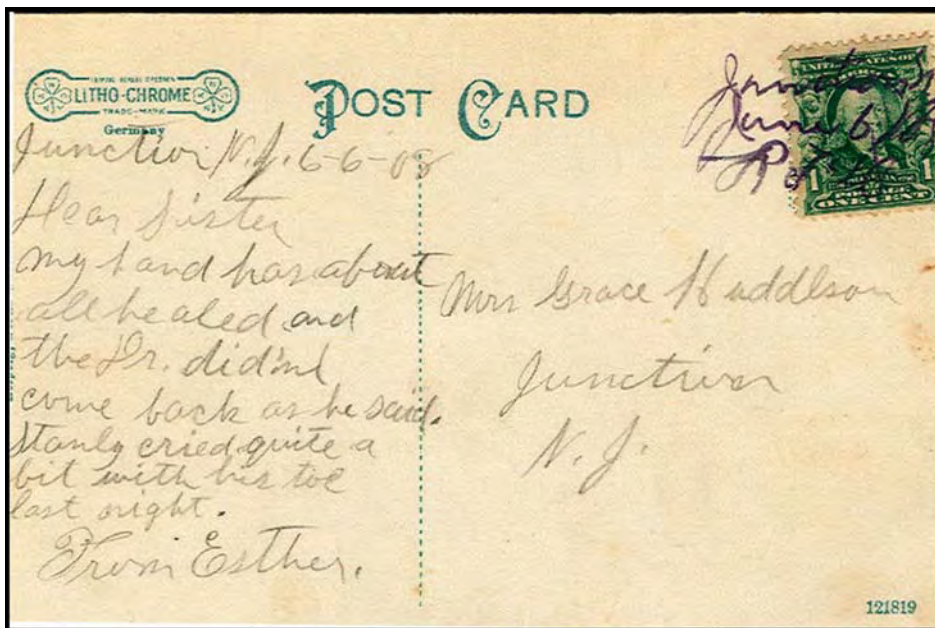 LITHO-CHROME
TRADE-MARK
Germany
POST CARD
UNITED STATES OF
June 6
1
ONE CENT
Junction N.J. 6-6-08
Dear Sister
my hand has about
all healed and
the Dr. did'nt
come back as he said.
Stanly cried quite a
bit with his toe
last night.
From Esther.
Mrs Grace Huddlson
Junction
N. J.
121819